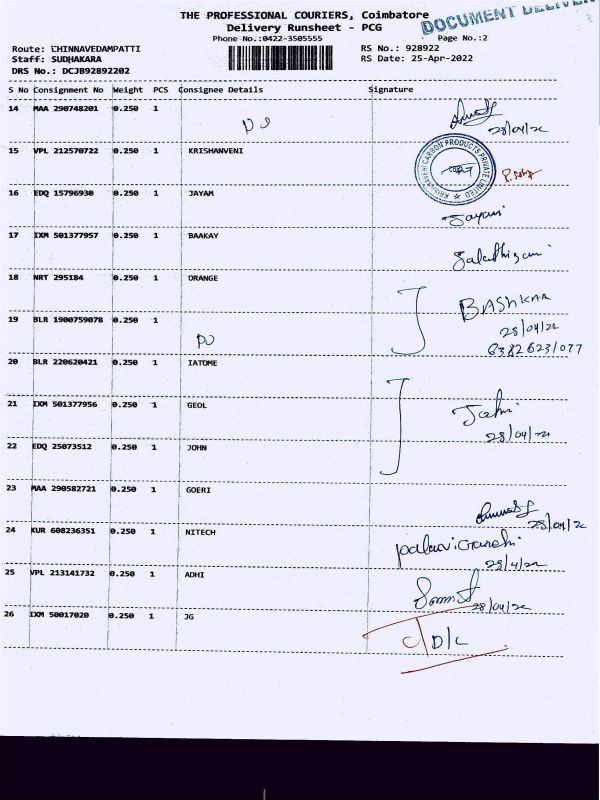 THE PROFESSIONAL COURIERS, Coimbatore
DOCUMENT
Delivery Runsheet - PCG
Phone No.:0422-3505555
Page No.:2
Route: CHINNAVEDAMPATTI
RS No.: 928922
Staff: SUDHAKARA
RS Date: 25-Apr-2022
DRS No.: DCJB92892202
S No Consignment No Weight PCS Consignee Details Signature
14 MAA 290748201 0.250 1
28/04/22
15 VPL 212570722 0.250 1 KRISHANVENI
KRISHNAVENI CARBON PRODUCTS PRIVATE LIMITED
16 EDQ 15796930 0.250 1 JAYAM
Jayam
17 IXM 501377957 0.250 1 BAAKAY
18 NRT 295184 0.250 1 ORANGE
BASHKAR
19 BLR 1900759078 0.250 1
28/04/22
6382623/077
20 BLR 220620421 0.250 1 IATOME
21 IXM 501377956 0.250 1 GEOL
28/04/22
22 EDQ 25073512 0.250 1 JOHN
23 MAA 290582721 0.250 1 GOERI
28/04/22
24 KUR 608236351 0.250 1 NITECH
28/4/22
25 VPL 213141732 0.250 1 ADHI
28/04/22
26 IXM 50017020 0.250 1 JG
D/L